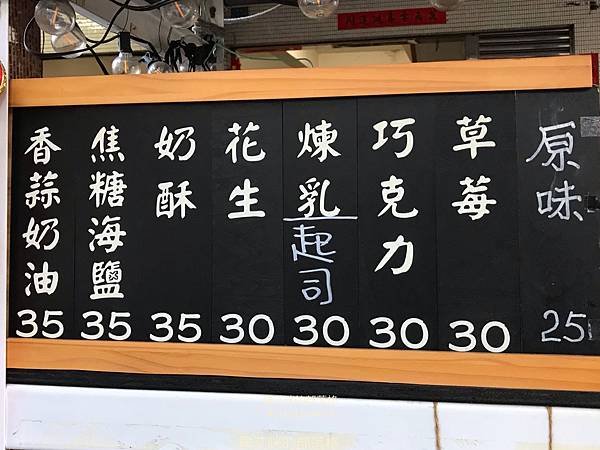 原味
25
草莓
30
巧克力
30
煉乳
起司
30
花生
30
奶酥
35
焦糖海鹽
35
香蒜奶油
35